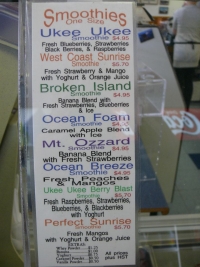 Smoothies
One Size
Ukee Ukee
Smoothie $4.95
Fresh Blueberries, Strawberries
Black Berries, & Raspberries
West Coast Sunrise
Smoothie $5.70
Fresh Strawberry & Mango
with Yoghurt & Orange Juice
Broken Island
Smoothie $4.95
Banana Blend with
Fresh Strawberries, Blueberries
& Ice
Ocean Foam
Smoothie
Caramel Apple Blend
with Ice
Mt. Ozzard
Smoothie $4.95
Banana Blend
with Fresh Strawberries
Ocean Breeze
Smoothie $4.95
Fresh Peaches
& Mangos
Ukee Ukee Berry Blast
Smoothie $5.70
Fresh Raspberries, Strawberries,
Blueberries, & Blackberries
with Yoghurt
Perfect Sunrise
Smoothie $5.70
Fresh Mangos
with Yoghurt & Orange Juice
All prices
plus HST